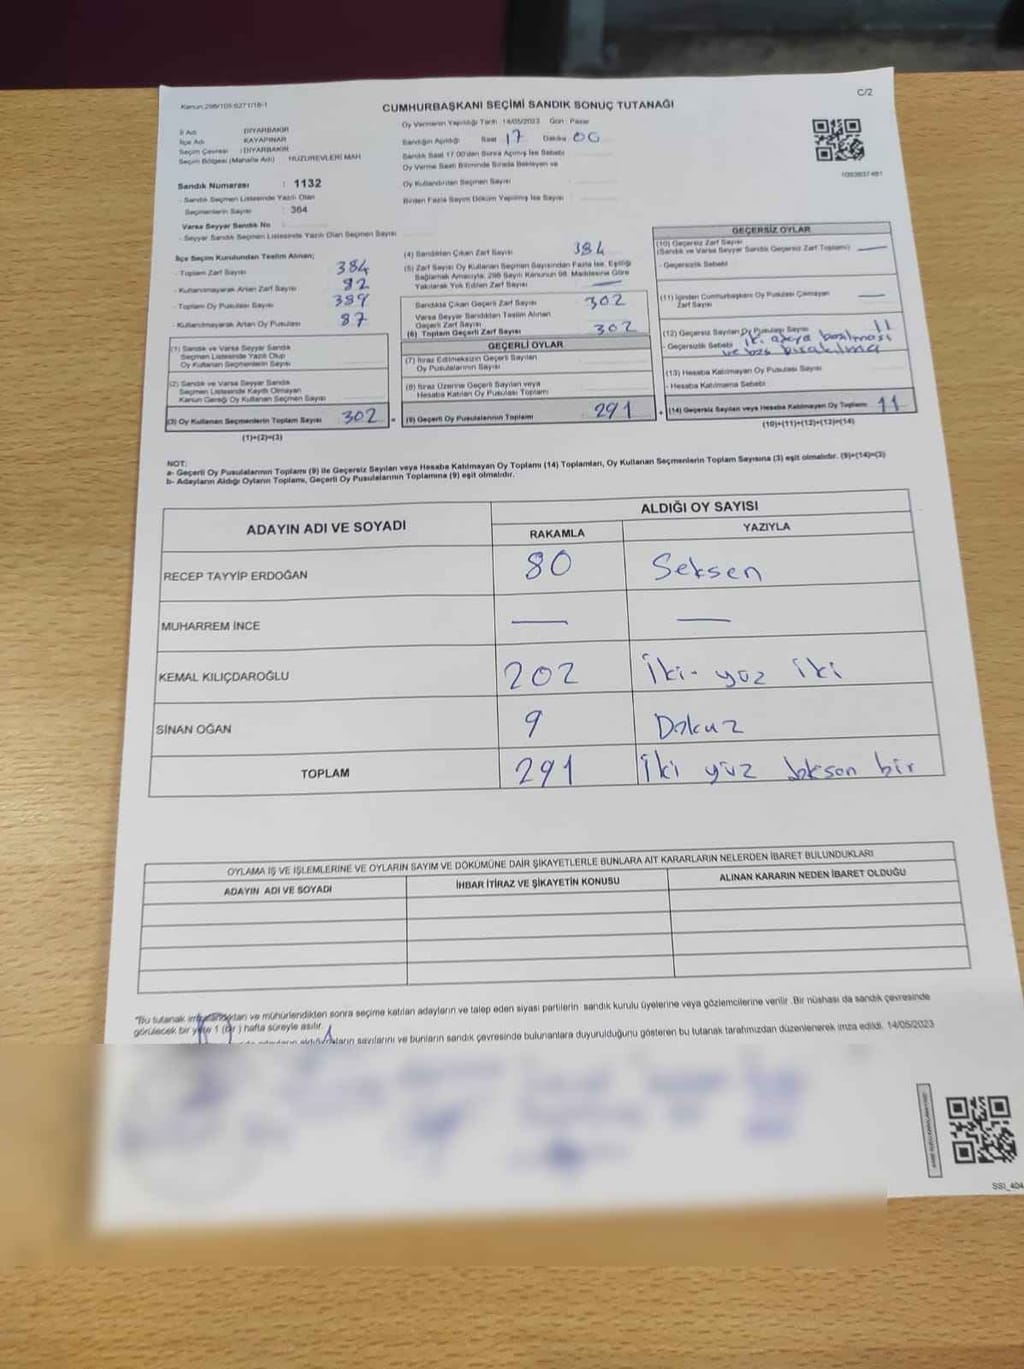 Kanun:298/105:6271/18-1
C/2
CUMHURBAŞKANI SEÇİMİ SANDIK SONUÇ TUTANAĞI
İl Adı DİYARBAKIR
İlçe Adı KAYAPINAR
Seçim Çevresi : DİYARBAKIR
Seçim Bölgesi (Mahalle Adı) HUZUREVLERİ MAH
Sandık Numarası : 1132
- Sandık Seçmen Listesinde Yazılı Olan
Seçmenlerin Sayısı : 364
Varsa Seyyar Sandık No
- Seyyar Sandık Seçmen Listesinde Yazılı Olan Seçmen Sayısı
Oy Vermenin Yapıldığı Tarih 14/05/2023 Gün : Pazar
Sandığın Açıldığı Saat 17 Dakika 00
Sandık Saat 17.00'den Sonra Açılmış İse Sebebi
Oy Verme Saati Bitiminde Sırada Bekleyen ve
Oy Kullandırılan Seçmen Sayısı
Birden Fazla Sayım Döküm Yapılmış İse Sayısı
İlçe Seçim Kurulundan Teslim Alınan;
- Toplam Zarf Sayısı 384
- Kullanılmayarak Artan Zarf Sayısı 82
- Toplam Oy Pusulası Sayısı 389
- Kullanılmayarak Artan Oy Pusulası 87
(1) Sandık ve Varsa Seyyar Sandık
Seçmen Listesinde Yazılı Olup
Oy Kullanan Seçmenlerin Sayısı
(2) Sandık ve Varsa Seyyar Sandık
Seçmen Listesinde Kayıtlı Olmayan
Kanun Gereği Oy Kullanan Seçmen Sayısı
(3) Oy Kullanan Seçmenlerin Toplam Sayısı 302
(1)+(2)=(3)
(4) Sandıktan Çıkan Zarf Sayısı 384
(5) Zarf Sayısı Oy Kullanan Seçmen Sayısından Fazla İse, Eşitliği
Sağlamak Amacıyla, 298 Sayılı Kanunun 98. Maddesine Göre
Yakılarak Yok Edilen Zarf Sayısı —
Sandıkta Çıkan Geçerli Zarf Sayısı 302
Varsa Seyyar Sandıktan Teslim Alınan
Geçerli Zarf Sayısı
(6) Toplam Geçerli Zarf Sayısı 302
GEÇERLİ OYLAR
(7) İtiraz Edilmeksizin Geçerli Sayılan
Oy Pusulalarının Sayısı
(8) İtiraz Üzerine Geçerli Sayılan veya
Hesaba Katılan Oy Pusulası Toplamı
= (9) Geçerli Oy Pusulalarının Toplamı 291
GEÇERSİZ OYLAR
(10) Geçersiz Zarf Sayısı
(Sandık ve Varsa Seyyar Sandık Geçersiz Zarf Toplamı) —
- Geçersizlik Sebebi
(11) İçinden Cumhurbaşkanı Oy Pusulası Çıkmayan
Zarf Sayısı —
(12) Geçersiz Sayılan Oy Pusulası Sayısı 11
- Geçersizlik Sebebi iki adaya basılması
ve boş bırakılma
(13) Hesaba Katılmayan Oy Pusulası Sayısı
- Hesaba Katılmama Sebebi
+ (14) Geçersiz Sayılan veya Hesaba Katılmayan Oy Toplamı 11
(10)+(11)+(12)+(13)=(14)
NOT:
a- Geçerli Oy Pusulalarının Toplamı (9) ile Geçersiz Sayılan veya Hesaba Katılmayan Oy Toplamı (14) Toplamları, Oy Kullanan Seçmenlerin Toplam Sayısına (3) eşit olmalıdır. (9)+(14)=(3)
b- Adayların Aldığı Oyların Toplamı, Geçerli Oy Pusulalarının Toplamına (9) eşit olmalıdır.
ADAYIN ADI VE SOYADI
ALDIĞI OY SAYISI
RAKAMLA YAZIYLA
RECEP TAYYİP ERDOĞAN 80 Seksen
MUHARREM İNCE — —
KEMAL KILIÇDAROĞLU 202 İki- yüz iki
SİNAN OĞAN 9 Dokuz
TOPLAM 291 İki yüz doksan bir
OYLAMA İŞ VE İŞLEMLERİNE VE OYLARIN SAYIM VE DÖKÜMÜNE DAİR ŞİKAYETLERLE BUNLARA AİT KARARLARIN NELERDEN İBARET BULUNDUKLARI
ADAYIN ADI VE SOYADI İHBAR İTİRAZ VE ŞİKAYETİN KONUSU ALINAN KARARIN NEDEN İBARET OLDUĞU
*Bu tutanak imzalandıktan ve mühürlendikten sonra seçime katılan adayların ve talep eden siyasi partilerin sandık kurulu üyelerine veya gözlemcilerine verilir .Bir nüshası da sandık çevresinde
görülecek bir yere 1 (bir ) hafta süreyle asılır.
sayılarını ve bunların sandık çevresinde bulunanlara duyurulduğunu gösteren bu tutanak tarafımızdan düzenlenerek imza edildi. 14/05/2023